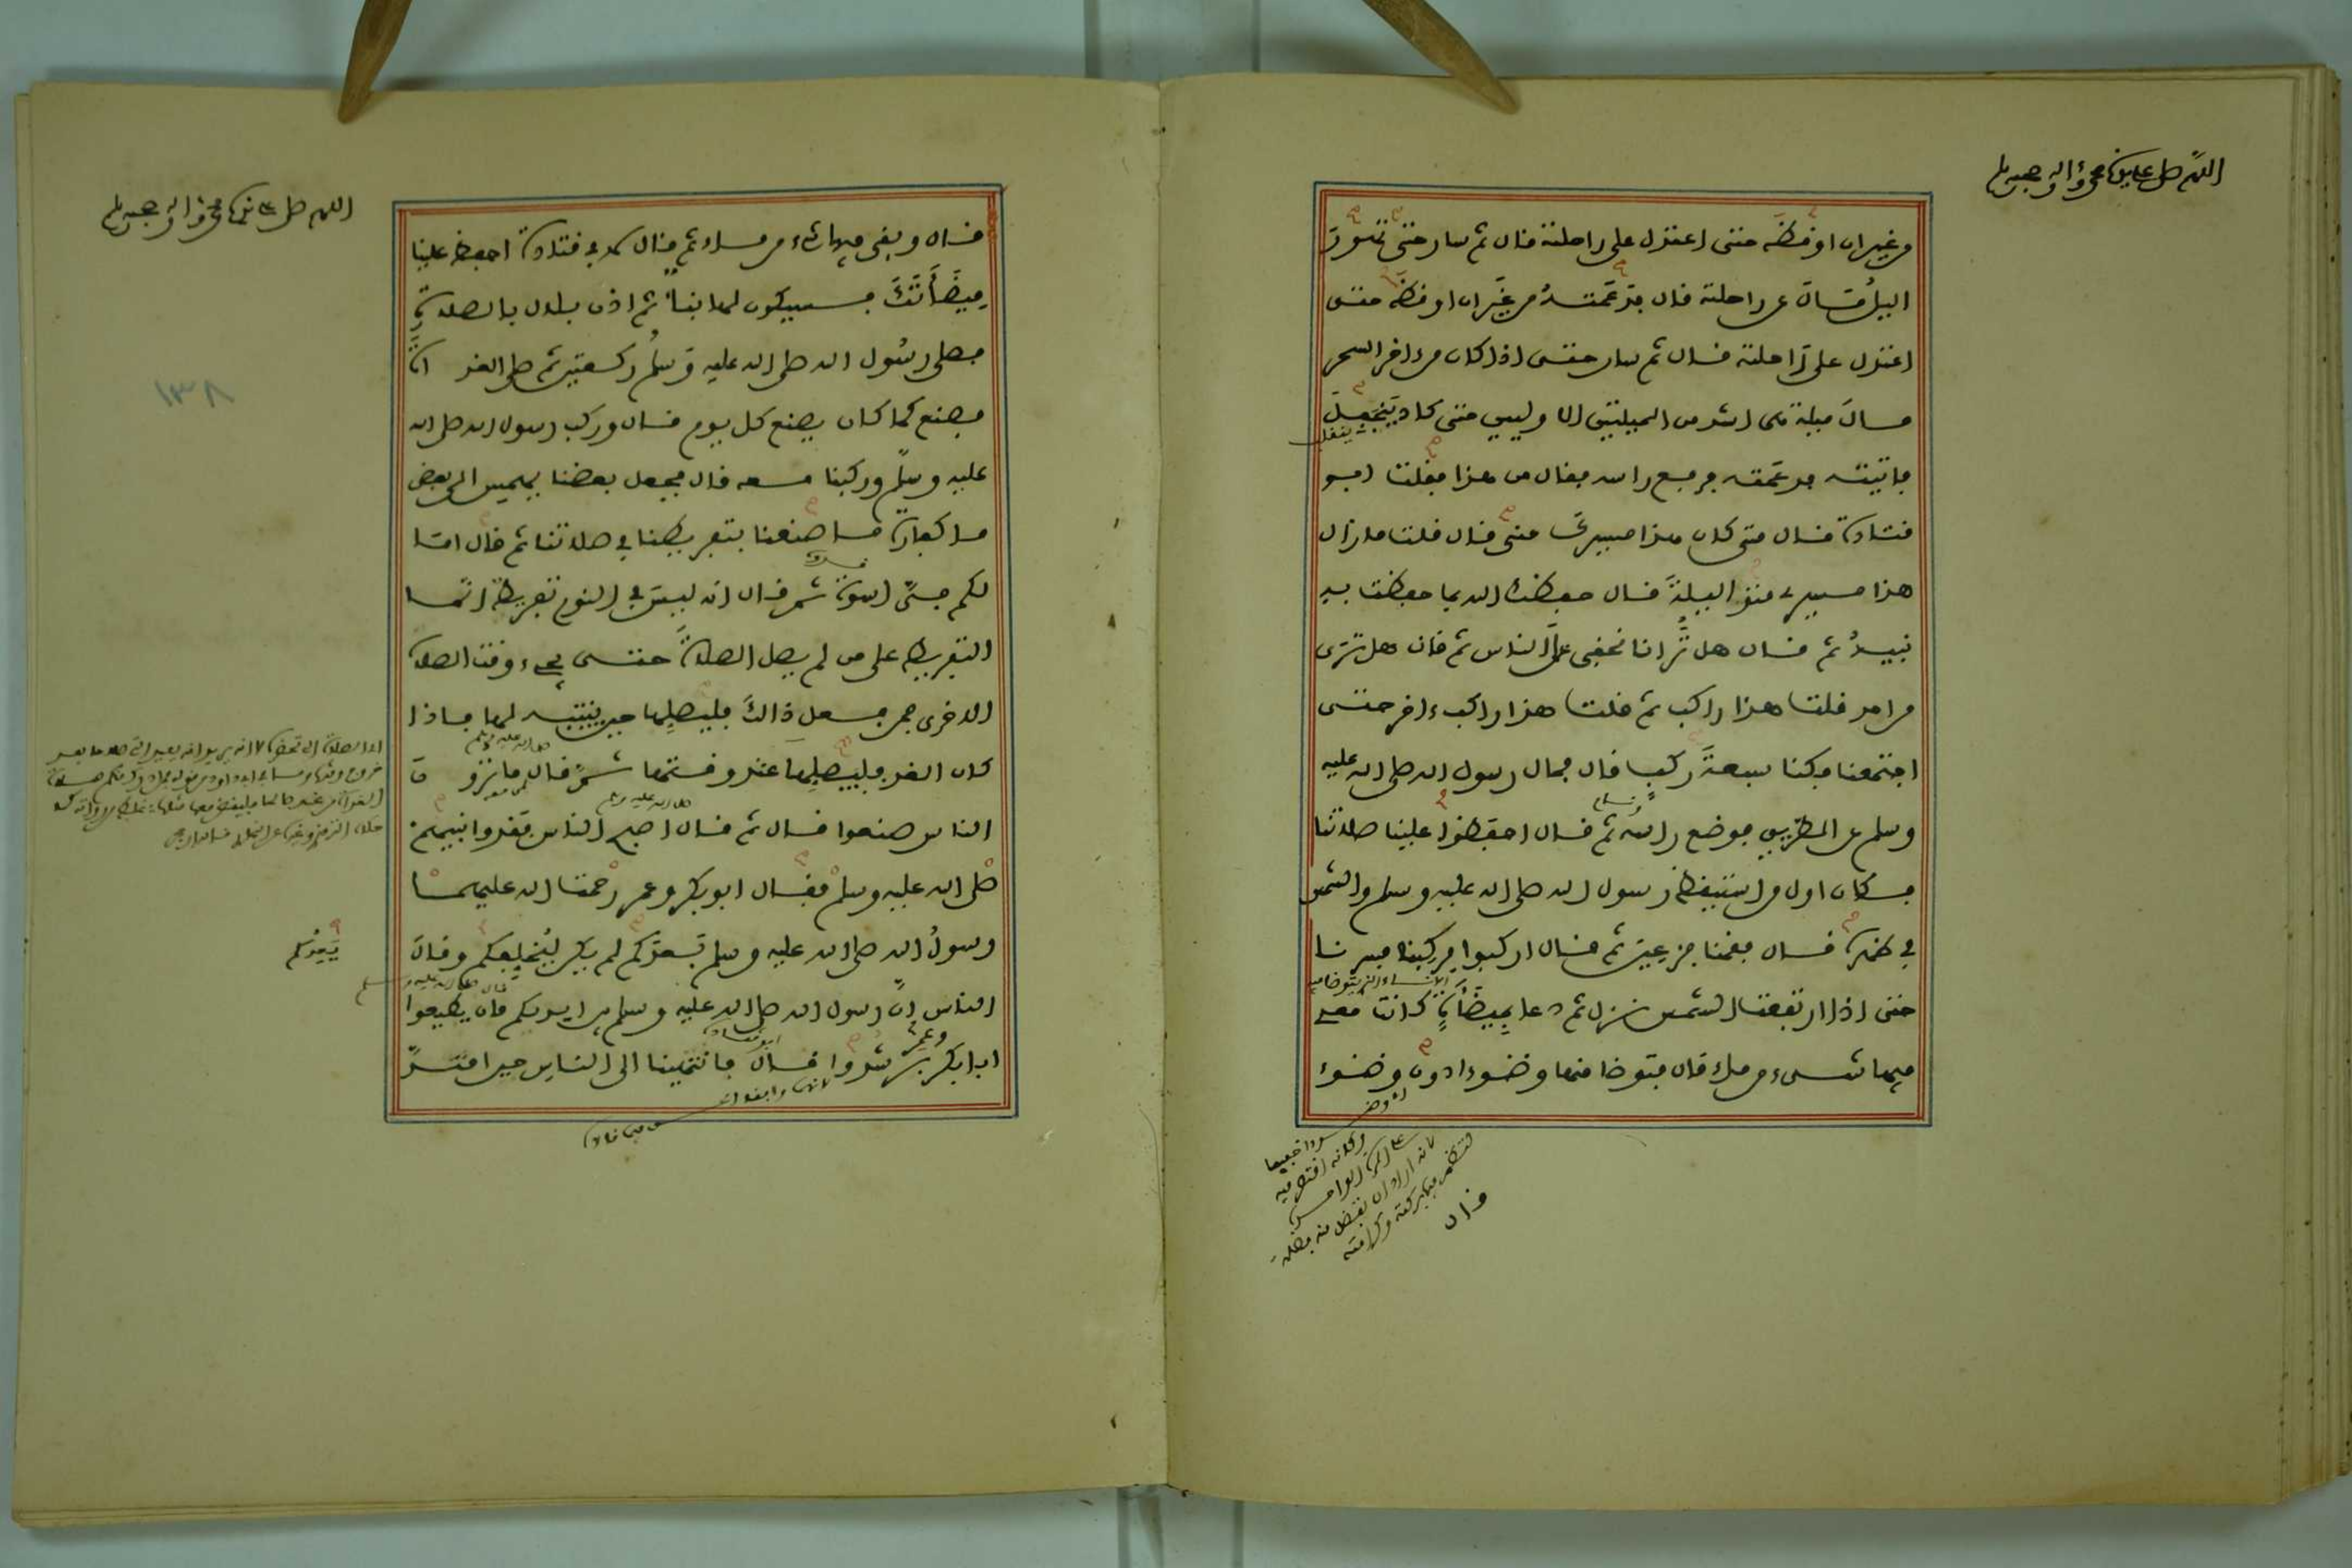 اللهم صل على نبينا محمد وءاله وصحبه وسلم
من غير ان اوقظه حتى اعتدل على راحلته قال ثم سار حتى تهور
اليل مال عن راحلته قال فدعمته من غير ان اوقظه حتى
اعتدل على راحلته قال ثم سار حتى اذا كان من ءاخر السحر
مال ميلة هى اشد من الميلتين الاوليين حتى كاد ينجفل
ينفل
فاتيته فدعمته فرفع راسه فقال من هذا فقلت ابو
قتادة قال متى كان هذا مسيرك منى قال قلت ما زال
هذا مسيرى منذ اليلة قال حفظك الله بما حفظت به
نبيه ثم قال هل ترانا نخفى على الناس ثم قال هل ترى
من احد قلت هذا راكب ثم قلت هذا راكب ءاخر حتى
اجتمعنا فكنا سبعة ركب قال فمال رسول الله صلى الله عليه
وسلم عن الطريق فوضع راسه ثم قال احفظوا علينا صلاتنا
فكان اول من استيقظ رسول الله صلى الله عليه وسلم والشمس
في ظهره قال فقمنا فزعين ثم قال اركبوا فركبنا فسرنا
حتى اذا ارتفعت الشمس نزل ثم دعا بميضأة كانت معى
فيها شىء من ماء قال فتوضا منها وضوءا دون وضوء
قال
اللهم صل على نبينا محمد وءاله وصحبه وسلم
قال وبقى فيها شىء من ماء ثم قال لابى قتادة احفظ علينا
ميضأتك فسيكون لها نبا ثم اذن بلال بالصلاة
فصلى رسول الله صلى الله عليه وسلم ركعتين ثم صلى الغداة
فصنع كما كان يصنع كل يوم قال وركب رسول الله صلى الله
عليه وسلم وركبنا معه قال فجعل بعضنا يهمس الى بعض
ما كفارة ما صنعنا بتفريطنا في صلاتنا ثم قال اما
لكم فى اسوة ثم قال انه ليس في النوم تفريط انما
التفريط على من لم يصل الصلاة حتى يجىء وقت الصلاة
الاخرى فمن فعل ذالك فليصلها حين ينتبه لها فاذا
كان الغد فليصلها عند وقتها ثم قال ما ترون
الناس صنعوا قال ثم قال اصبح الناس فقدوا نبيهم
صلى الله عليه وسلم فقال ابو بكر وعمر رحمت الله عليهما
رسول الله صلى الله عليه وسلم بعدكم لم يكن ليخلفكم وقال
الناس ان رسول الله صلى الله عليه وسلم بين ايديكم فان يطيعوا
ابا بكر وعمر يرشدوا قال فانتهينا الى الناس حين امتد